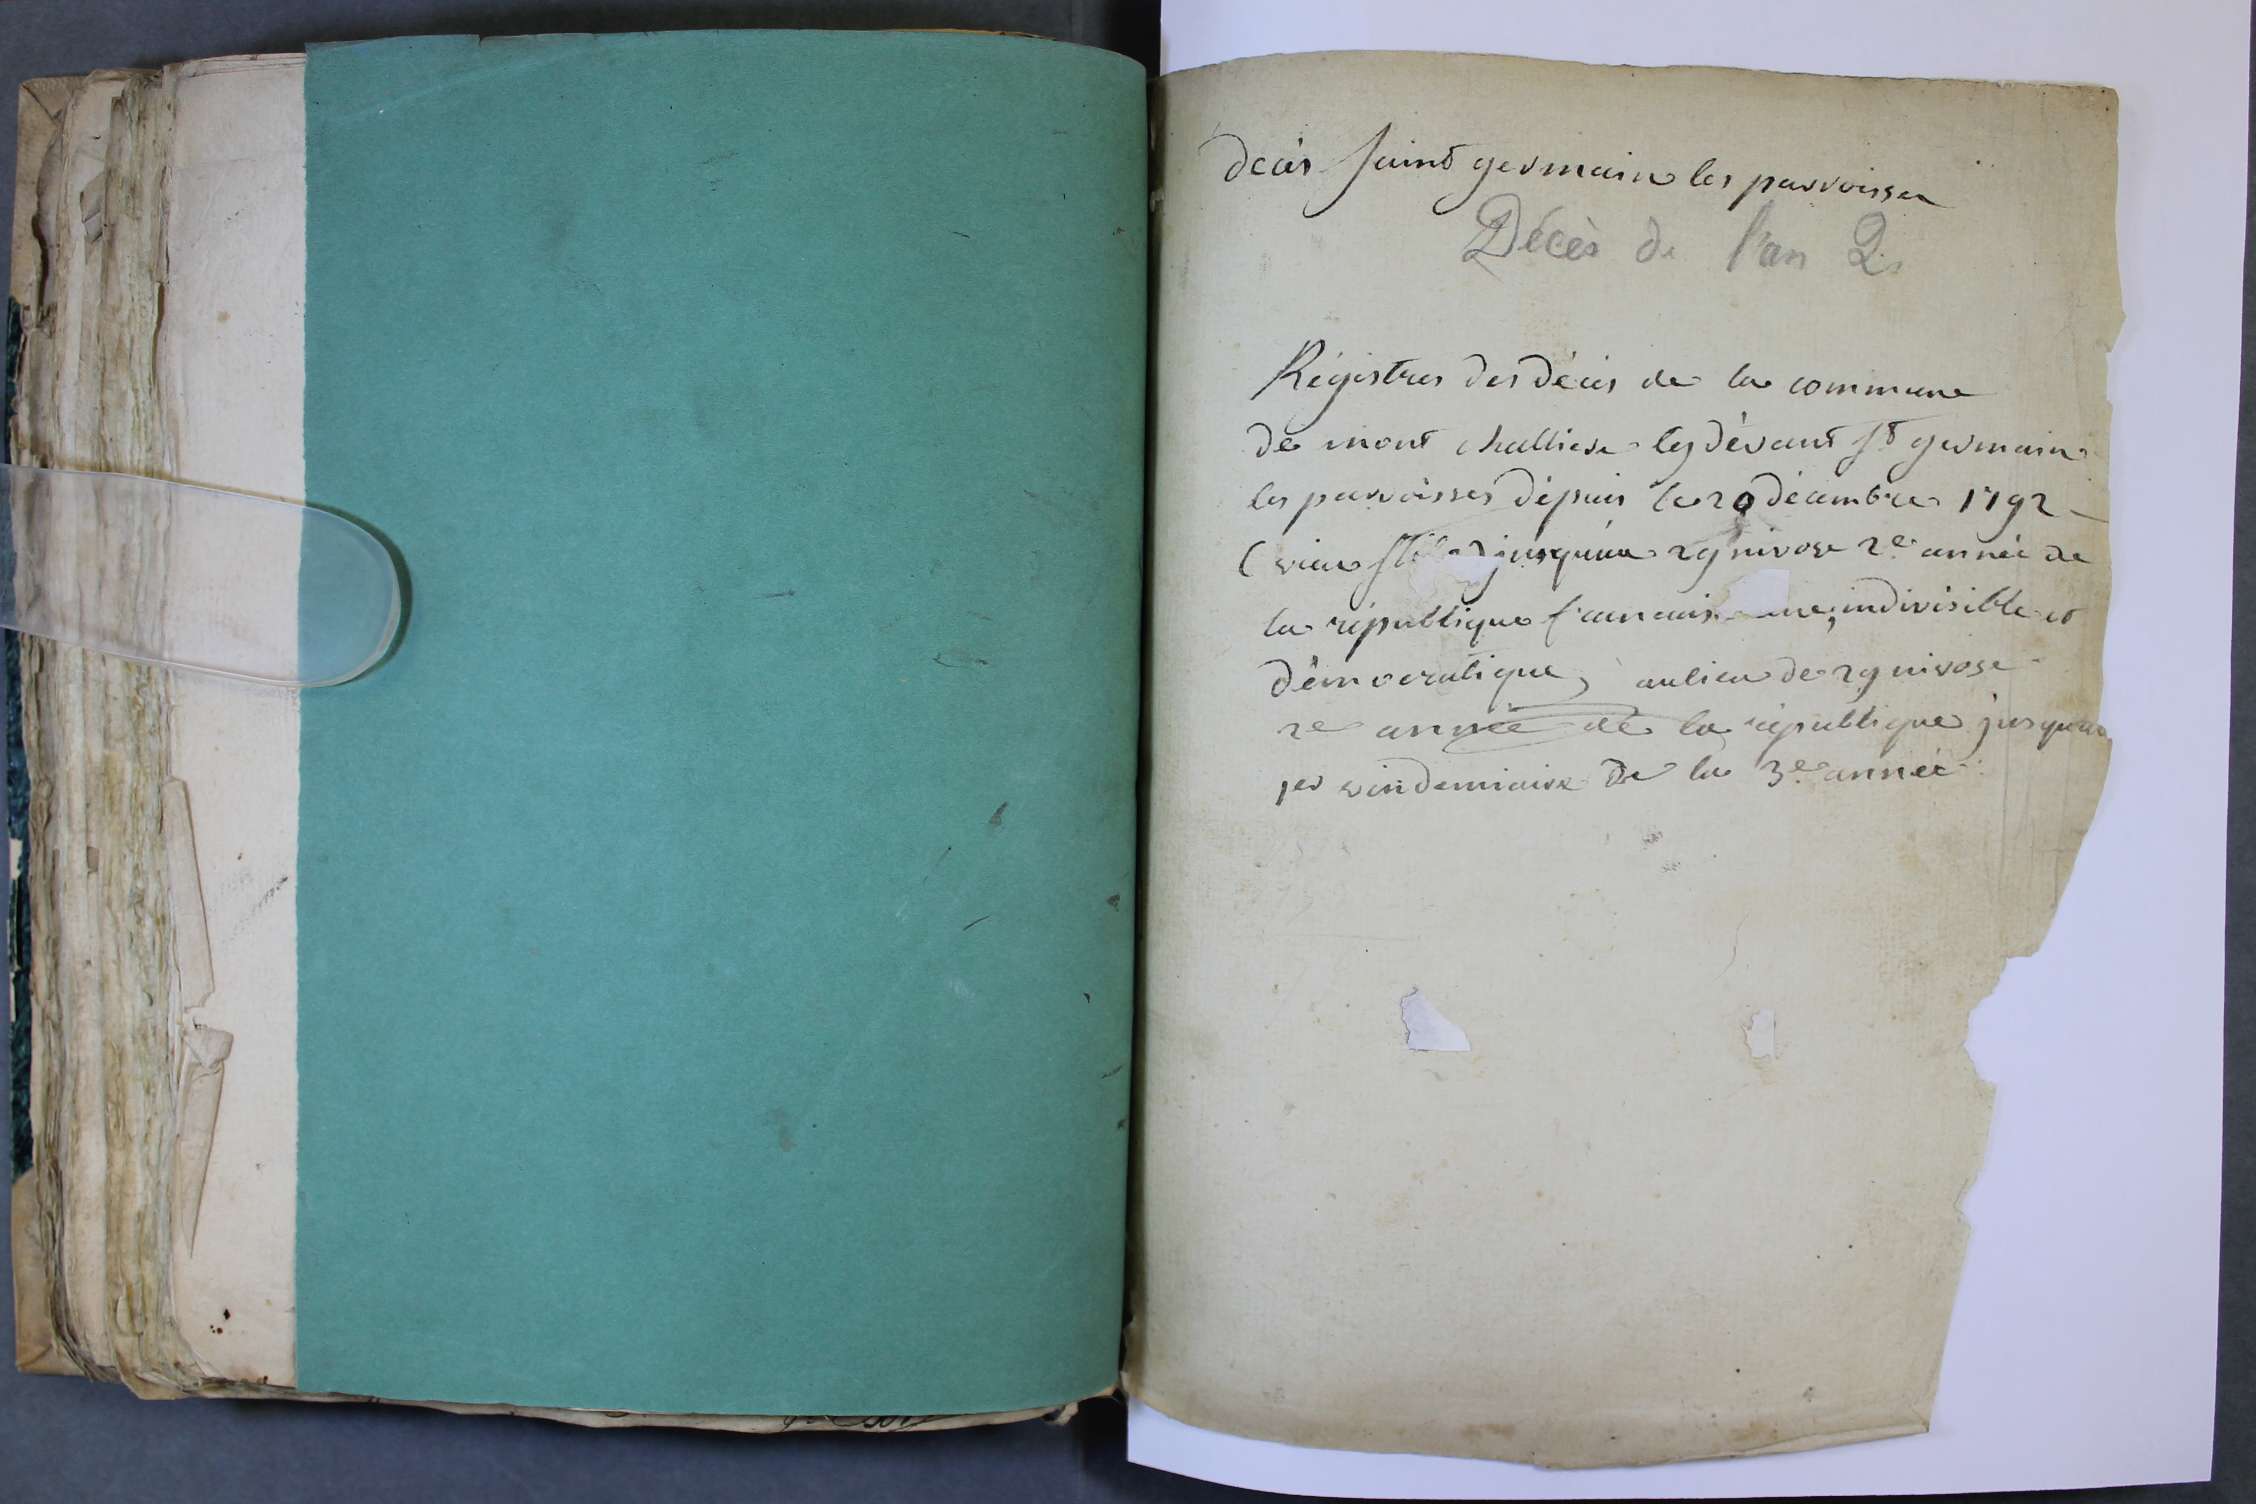 décès saint germain les parroisses
Décès de l'an 2
Régistres des décès de la commune
de mont challier cy dévant St germain
les parroisses dépuis le 20 décembre 1792
(vieux jusqu'au 29 nivose 2e année de
la république indivisible et
démocratique, aulieu de 29 nivose
2e année de la république jusquau
1er vindemiaire de la 3e année